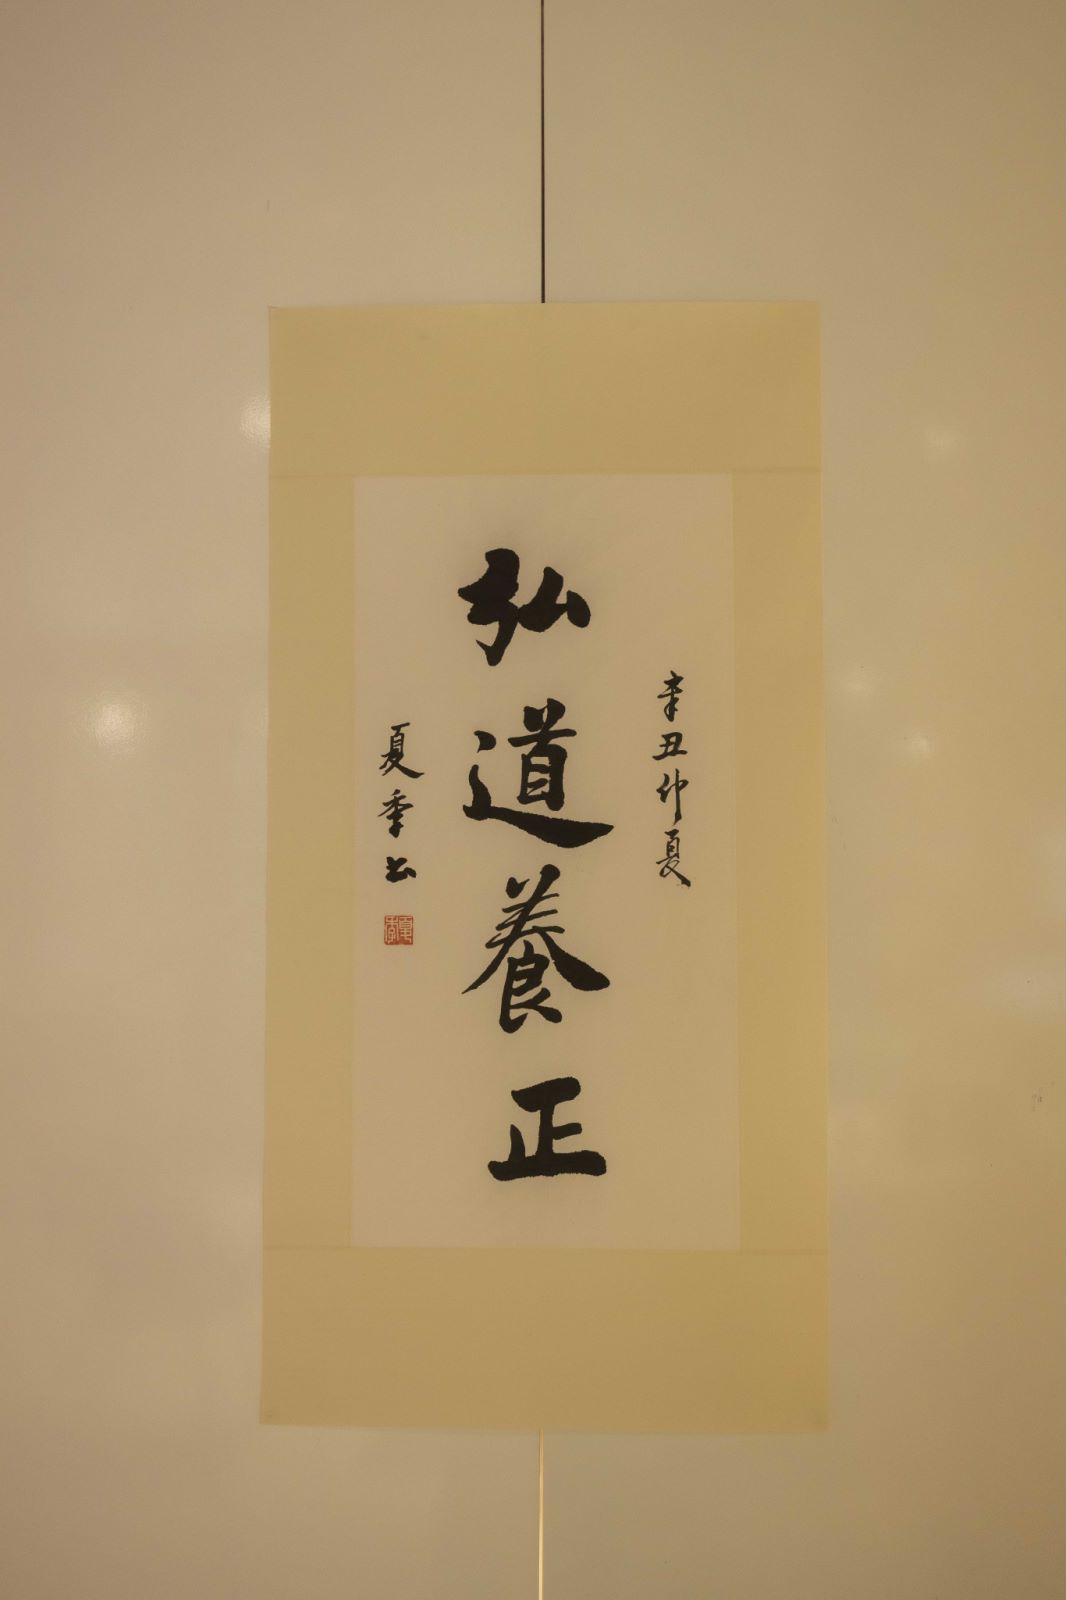 辛丑仲夏
弘道養正
夏季书
夏季